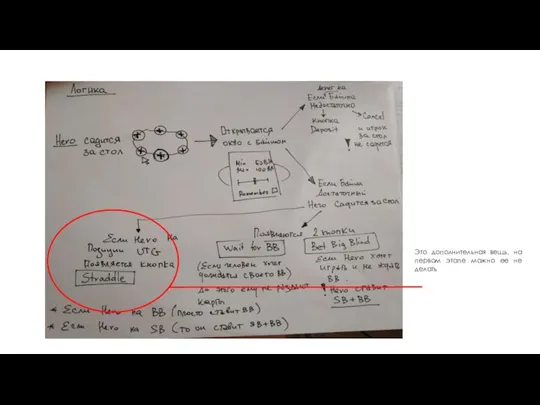 Логика
Hero садится
за стол
Открывается
окно с Байином
Min 50BB
Max 100BB
Remember
Если Байина
Недостаточно
кнопка
Deposit
Cancel
и игрок
за стол
не садится
Если Байин
Достаточный
Hero садится за стол
Появляются 2 кнопки
Wait for BB
Bet Big Blind
(Если человек хочет
дождаться своего BB)
До этого ему не
карты
Если Hero хочет
играть и не ждать
BB.
! Hero ставит
SB+BB
Если Hero на
Позиции UTG
Появляется кнопка
Straddle
* Если Hero на BB (просто ставит BB)
* Если Hero на SB (то он ставит SB+BB)
Это дополнительная вещь, на
первом этапе можно ее не
делать